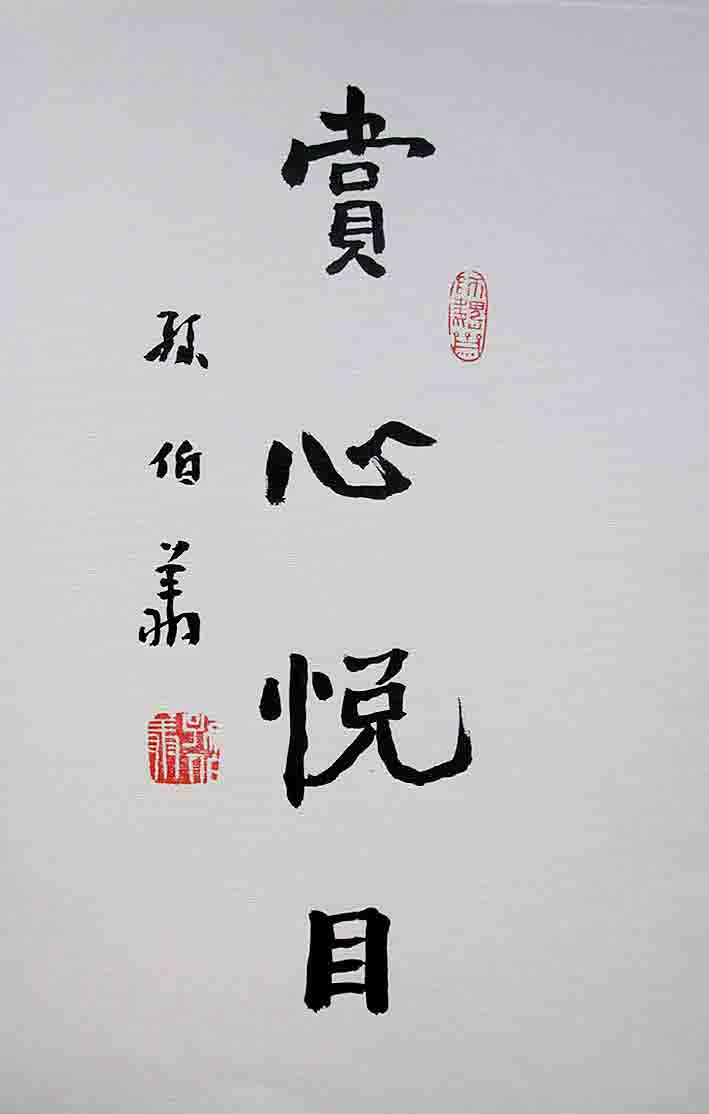 賞心悦目
孫伯翔